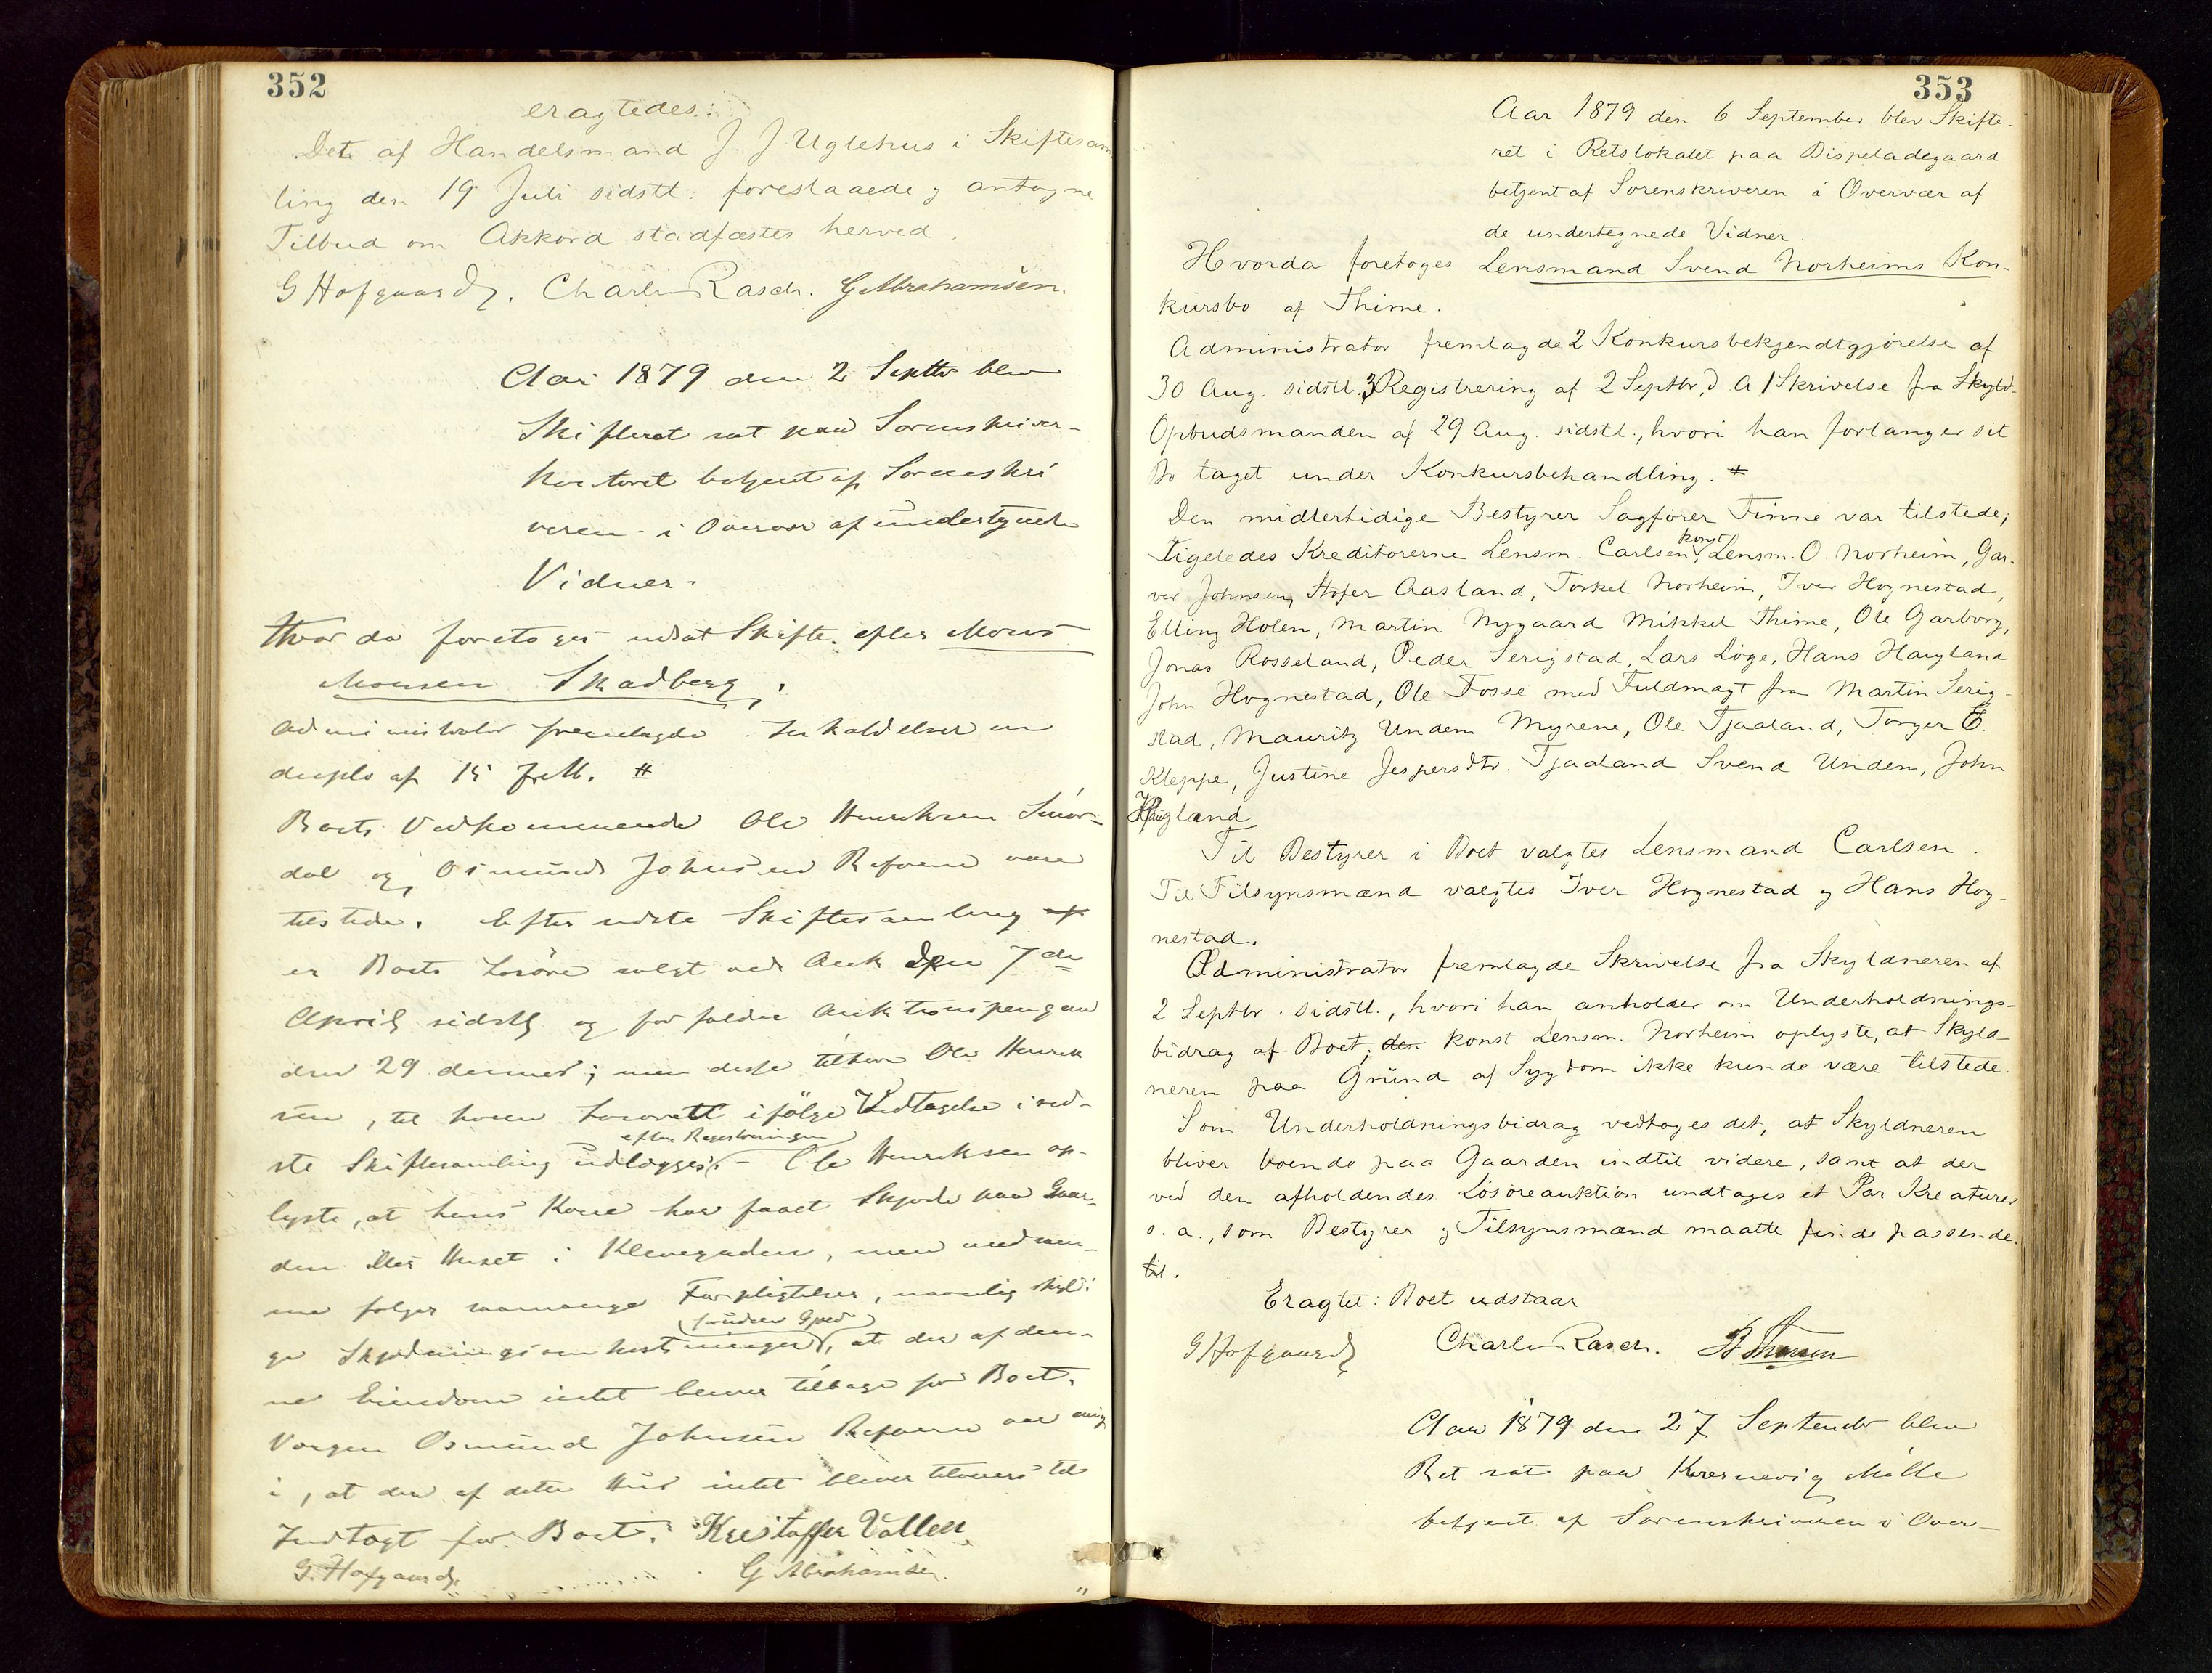 352
eragtedes:
Det af Handelsmand J. J Uglehus i Skiftesam
ling den 19 Juli sidstl. foreslaaede og antagne
Tilbud om Akkord stadfæstes herved.
G Hofgaard. Charles Rasch. G Abrahamsen.
Aar 1879 den 2 Septbr blev
Skifteret sat paa Sorenskriver-
kontoret betjent af Sorenskri
veren i Overvær af undertegnede
Vidner.
Hvor da foretoges udsat Skifte efter Mons
Monsen Skadberg,
Administrator fremlagde Indkaldelser in
duplo af 15 #
Boets Vedkommende Ole Henriksen
dal og Osmund Johnsen Refven vare
tilstede. Efter sidste Skiftesamling
er Boets Løsøre solgt ved Auk den 7 de
April sidstl og forfalder Auktionspengene
den 29 dennes; men disse tilhør Ole Henrik
sen, til hvem Løsøret ifølge Vedtagelse i sid-
efter Registreringen
ste Skiftesamling udlagges. - Ole Henriksen op-
lyste, at hans Kone har faaet Skjøde paa Gaar-
den eller Huset i Klevegaden, men med
me følger saamange Forpligtelser, navnlig skyldi
foruden Gjeld
ge Skjødningsomkostninger, at der af den-
ne Eiendom intet bliver tilbage for Boet.
Vergen Osmund Johnsen Refven var enig
i, at der af dette Hus intet bliver tilovers til
Indtægt for Boet. Kristoffer Vallen
G. Hofgaard. G Abrahamsen.
353
Aar 1879 den 6 September blev Skifte-
ret i Retslokalet paa Dispeladegaard
betjent af Sorenskriveren i Overvær af
de undertegnede Vidner.
Hvorda foretoges Lensmand Svend Norheims Kon-
kursbo af Thime.
Administrator fremlagde 2 Konkursbekjendtgjørelse af
30 Aug. sidstl. 3 Registrering af 2 Septbr, d. A 1 Skrivelse fra Skyld-
Opbudsmanden af 29 Aug. sidstl., hvori han forlanger sit
Bo taget under Konkursbehandling. #
Den midlertidige Bestyrer Sagfører Finne var tilstede,
konst
ligeledes Kreditorerne Lensm. Carlsen, Lensm. O. Norheim, Gar-
ver Johnsen, Stofer Aasland, Torkel Norheim, Iver Hognestad,
Elling Holen, Martin Nygaard Mikkel Thime, Ole Garborg,
Jonas Rosseland, Peder Serigstad, Lars Løge, Hans Haugland
John Hognestad, Ole Fosse med Fuldmagt fra Martin Serig-
stad, Mauritz Undem Myrene, Ole Tjaaland, Torger E.
Kleppe, Justine Jespersdtr. Tjaaland Svend Undem, John
Haugland
Til Bestyrer i Boet valgtes Lensmand Carlsen.
Til Tilsynsmænd valgtes Iver Hognestad og Hans Hog-
nestad.
Administrator fremlagde Skrivelse fra Skyldneren af
2 Septbr. sidstl., hvori han anholder om Underholdnings-
bidrag af Boet; den konst Lensm. Norheim oplyste, at Skyld-
neren paa Grund af Sygdom ikke kunde være tilstede.
Som Underholdningsbidrag vedtoges det, at Skyldneren
bliver boende paa Gaarden indtil videre, samt at der
ved den afholdendes Løsøreauktion undtages et Par Kreaturer
o. a., som Bestyrer og Tilsynsmænd maatte finde passende
til.
Eragtet: Boet udstaar
G Hofgaard Charles Rasch.
Aar 1879 den 27 Septembr blev
Ret sat paa Kvernevig Mølle
betjent af Sorenskriveren i Over-